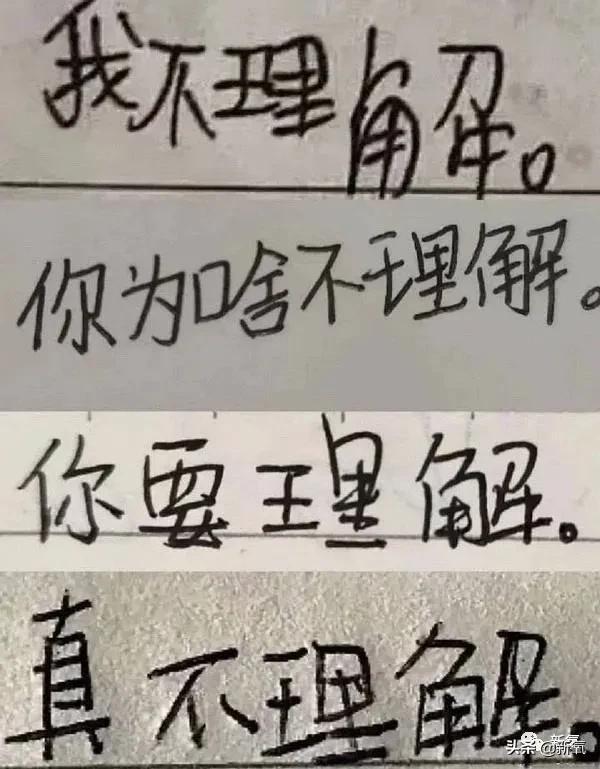 我不理解。
你为啥不理解。
你要理解。
真不理解。
新氧
头条 @新氧